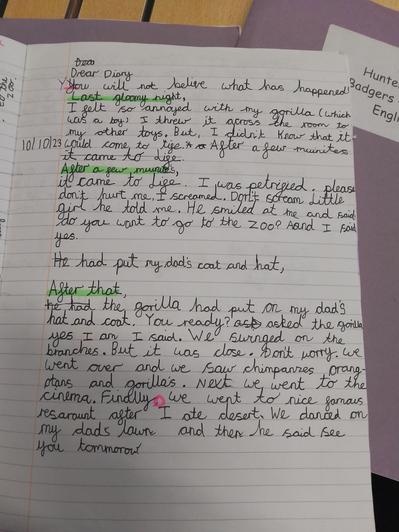 Dear
Dear Diary
You will not believe what has happened
Last gloomy night,
I felt so annoyed with my gorilla (which
was a toy) I threw it across the room to
my other toys. But, I didn't know that it
10/10/23 would come to life. After a few muinites
it came to life.
After a few muinuts,
it came to life. I was petrified. please
don't hurt me, I screamed. Don't scream little
girl he told me. He smiled at me and said
do you want to go to the Zoo? And I said
yes.
He had put my dad's coat and hat,
After that,
he had the gorilla had put on my dad's
hat and coat. You ready? ask asked the gorilla
yes I am I said. We surnged on the
branches. But it was close. Don't worry. we
went over and we saw chimpanzes orang-
otans and gorilla's. Next we went to the
cinema. Finally we went to nice famous
resaraunt after I ate desert. We danced on
my dads lawn and then he said see
you tommorow
Hunte
Badgers
Engli